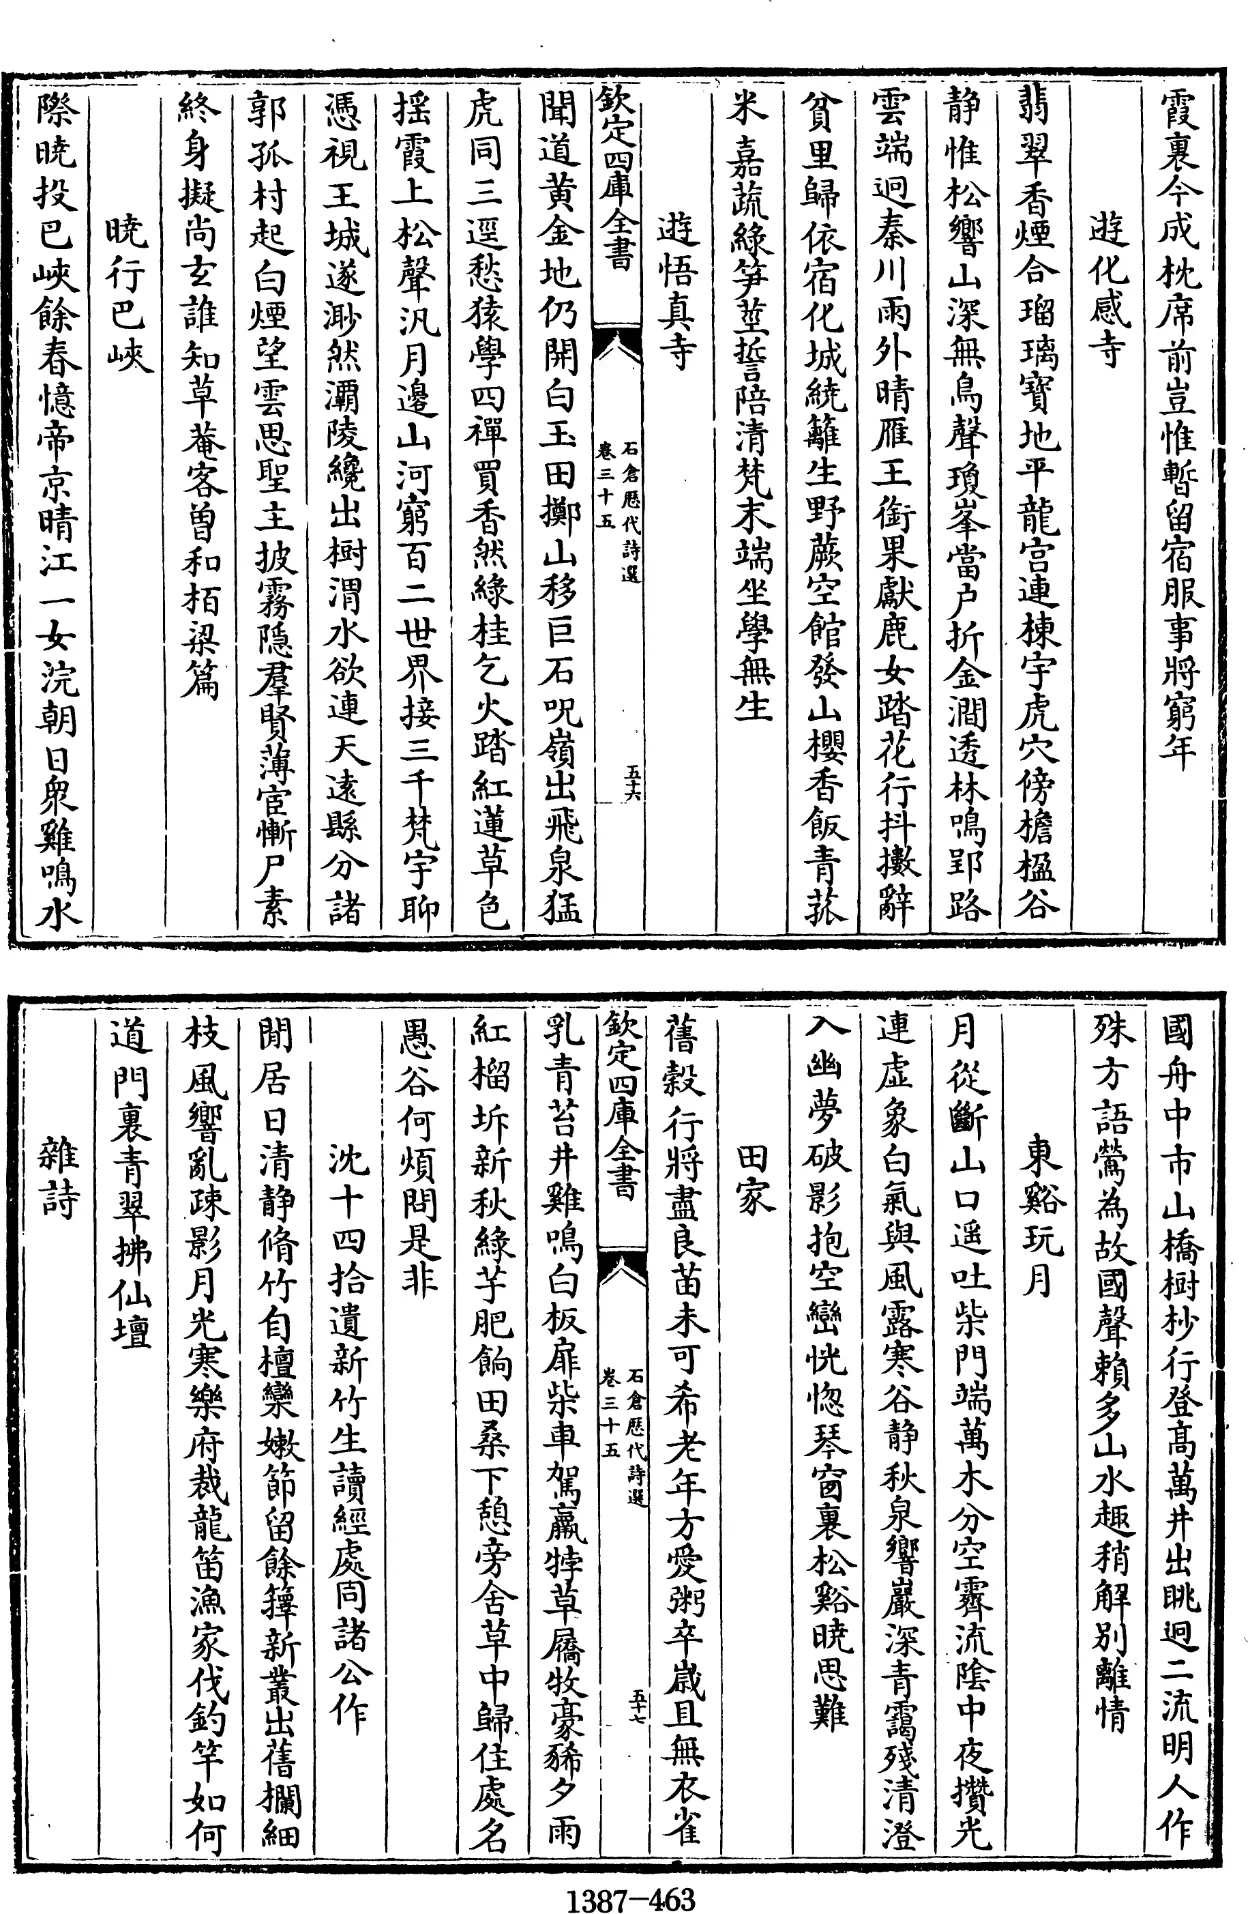 霞裏今成枕席前豈惟暫留宿服事將窮年
遊化感寺
翡翠香煙合瑠璃寳地平龍宫連棟宇虎穴傍檐楹谷
静惟松響山深無鳥聲瓊峯當户拆金澗透林鳴郢路
雲端迥秦川雨外晴雁王銜果獻鹿女踏花行抖擻辭
貧里歸依宿化城繞籬生野蕨空館發山櫻香飯青菰
米嘉蔬緑笋莖誓陪清梵末端坐學無生
遊悟真寺
欽定四庫全書
石倉厯代詩選
卷三十五
五十六
聞道黄金地仍開白玉田擲山移巨石呪嶺出飛泉猛
虎同三逕愁猿學四禪買香然緑桂乞火踏紅蓮草色
摇霞上松聲汎月邊山河窮百二世界接三千梵宇聊
憑視王城遂渺然灞陵纔出樹渭水欲連天逺縣分諸
郭孤村起白煙望雲思聖主披霧隠羣賢薄宦慚尸素
終身擬尚玄誰知草菴客曽和栢梁篇
曉行巴峽
際曉投巴峽餘春憶帝京晴江一女浣朝日衆雞鳴水
國舟中市山橋樹杪行登髙萬井出眺迥二流明人作
殊方語鶯為故國聲賴多山水趣稍解别離情
東谿玩月
月從斷山口遥吐柴門端萬木分空霽流陰中夜攢光
連虚象白氣與風露寒谷静秋泉響巖深青靄殘清澄
入幽夢破影抱空巒恍惚琴窗裏松谿曉思難
田家
舊穀行將盡良苗未可希老年方愛粥卒歲且無衣雀
欽定四庫全書
石倉厯代詩選
卷三十五
五十七
乳青苔井雞鳴白板扉柴車駕羸牸草屩牧豪豨夕雨
紅榴坼新秋緑芋肥餉田桑下憩旁舍草中歸住處名
愚谷何煩問是非
沈十四拾遺新竹生讀經處同諸公作
閒居日清静脩竹自檀欒嫩節留餘籜新叢出舊欄細
枝風響亂疎影月光寒樂府裁龍笛漁家伐釣竿如何
道門裏青翠拂仙壇
雜詩
1387-463